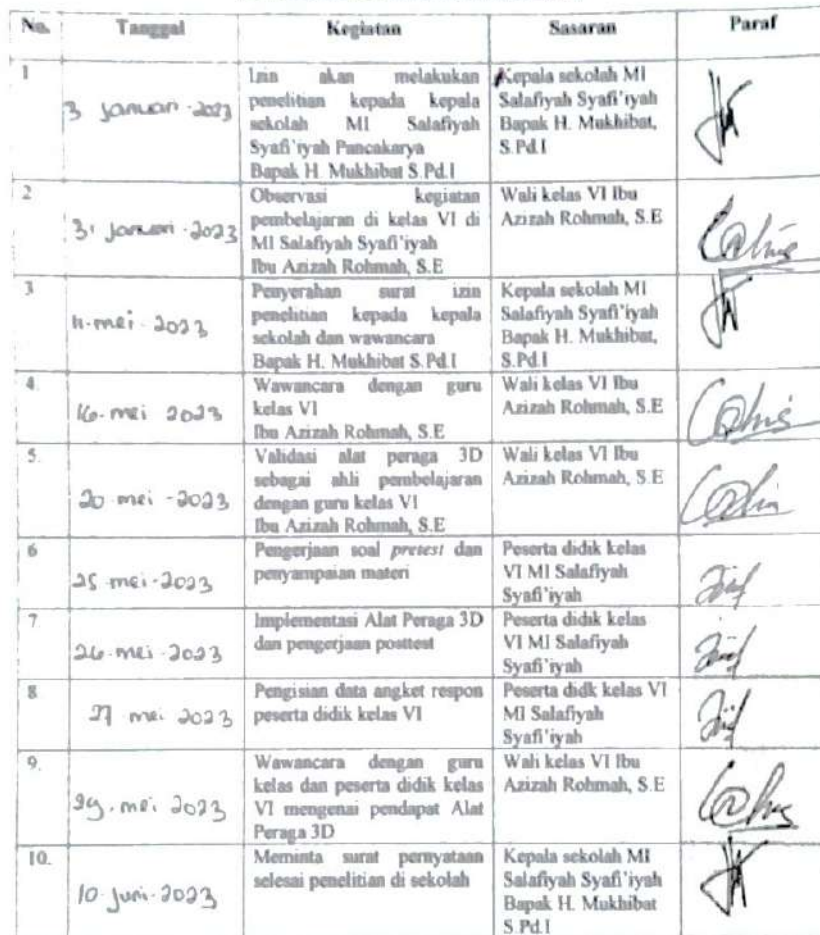 No. Tanggal Kegiatan Sasaran Paraf
1
3 januari-2023
Izin akan melakukan
penelitian kepada kepala
sekolah MI Salafiyah
Syafi'iyah Pancakarya
Bapak H. Mukhibat S.Pd.I
Kepala sekolah MI
Salafiyah Syafi'iyah
Bapak H. Mukhibat,
S.Pd.I
2
januari-2023
Observasi kegiatan
pembelajaran di kelas VI di
MI Salafiyah Syafi'iyah
Ibu Azizah Rohmah, S.E
Wali kelas VI Ibu
Azizah Rohmah, S.E
3
11-mei-2023
Penyerahan surat izin
penelitian kepada kepala
sekolah dan wawancara
Bapak H. Mukhibat S.Pd.I
Kepala sekolah MI
Salafiyah Syafi'iyah
Bapak H. Mukhibat,
S.Pd.I
4.
16-mei 2023
Wawancara dengan guru
kelas VI
Ibu Azizah Rohmah, S.E
Wali kelas VI Ibu
Azizah Rohmah, S.E
5.
20-mei-2023
Validasi alat peraga 3D
sebagai ahli pembelajaran
dengan guru kelas VI
Ibu Azizah Rohmah, S.E
Wali kelas VI Ibu
Azizah Rohmah, S.E
6
25-mei-2023
Pengerjaan soal pretest dan
penyampaian materi
Peserta didik kelas
VI MI Salafiyah
Syafi'iyah
7
26-mei-2023
Implementasi Alat Peraga 3D
dan pengerjaan posttest
Peserta didik kelas
VI MI Salafiyah
Syafi'iyah
8
27 mei 2023
Pengisian data angket respon
peserta didik kelas VI
Peserta didk kelas VI
MI Salafiyah
Syafi'iyah
9.
29-mei 2023
Wawancara dengan guru
kelas dan peserta didik kelas
VI mengenai pendapat Alat
Peraga 3D
Wali kelas VI Ibu
Azizah Rohmah, S.E
10.
10-juni-2023
Meminta surat pernyataan
selesai penelitian di sekolah
Kepala sekolah MI
Salafiyah Syafi'iyah
Bapak H. Mukhibat
S.Pd.I